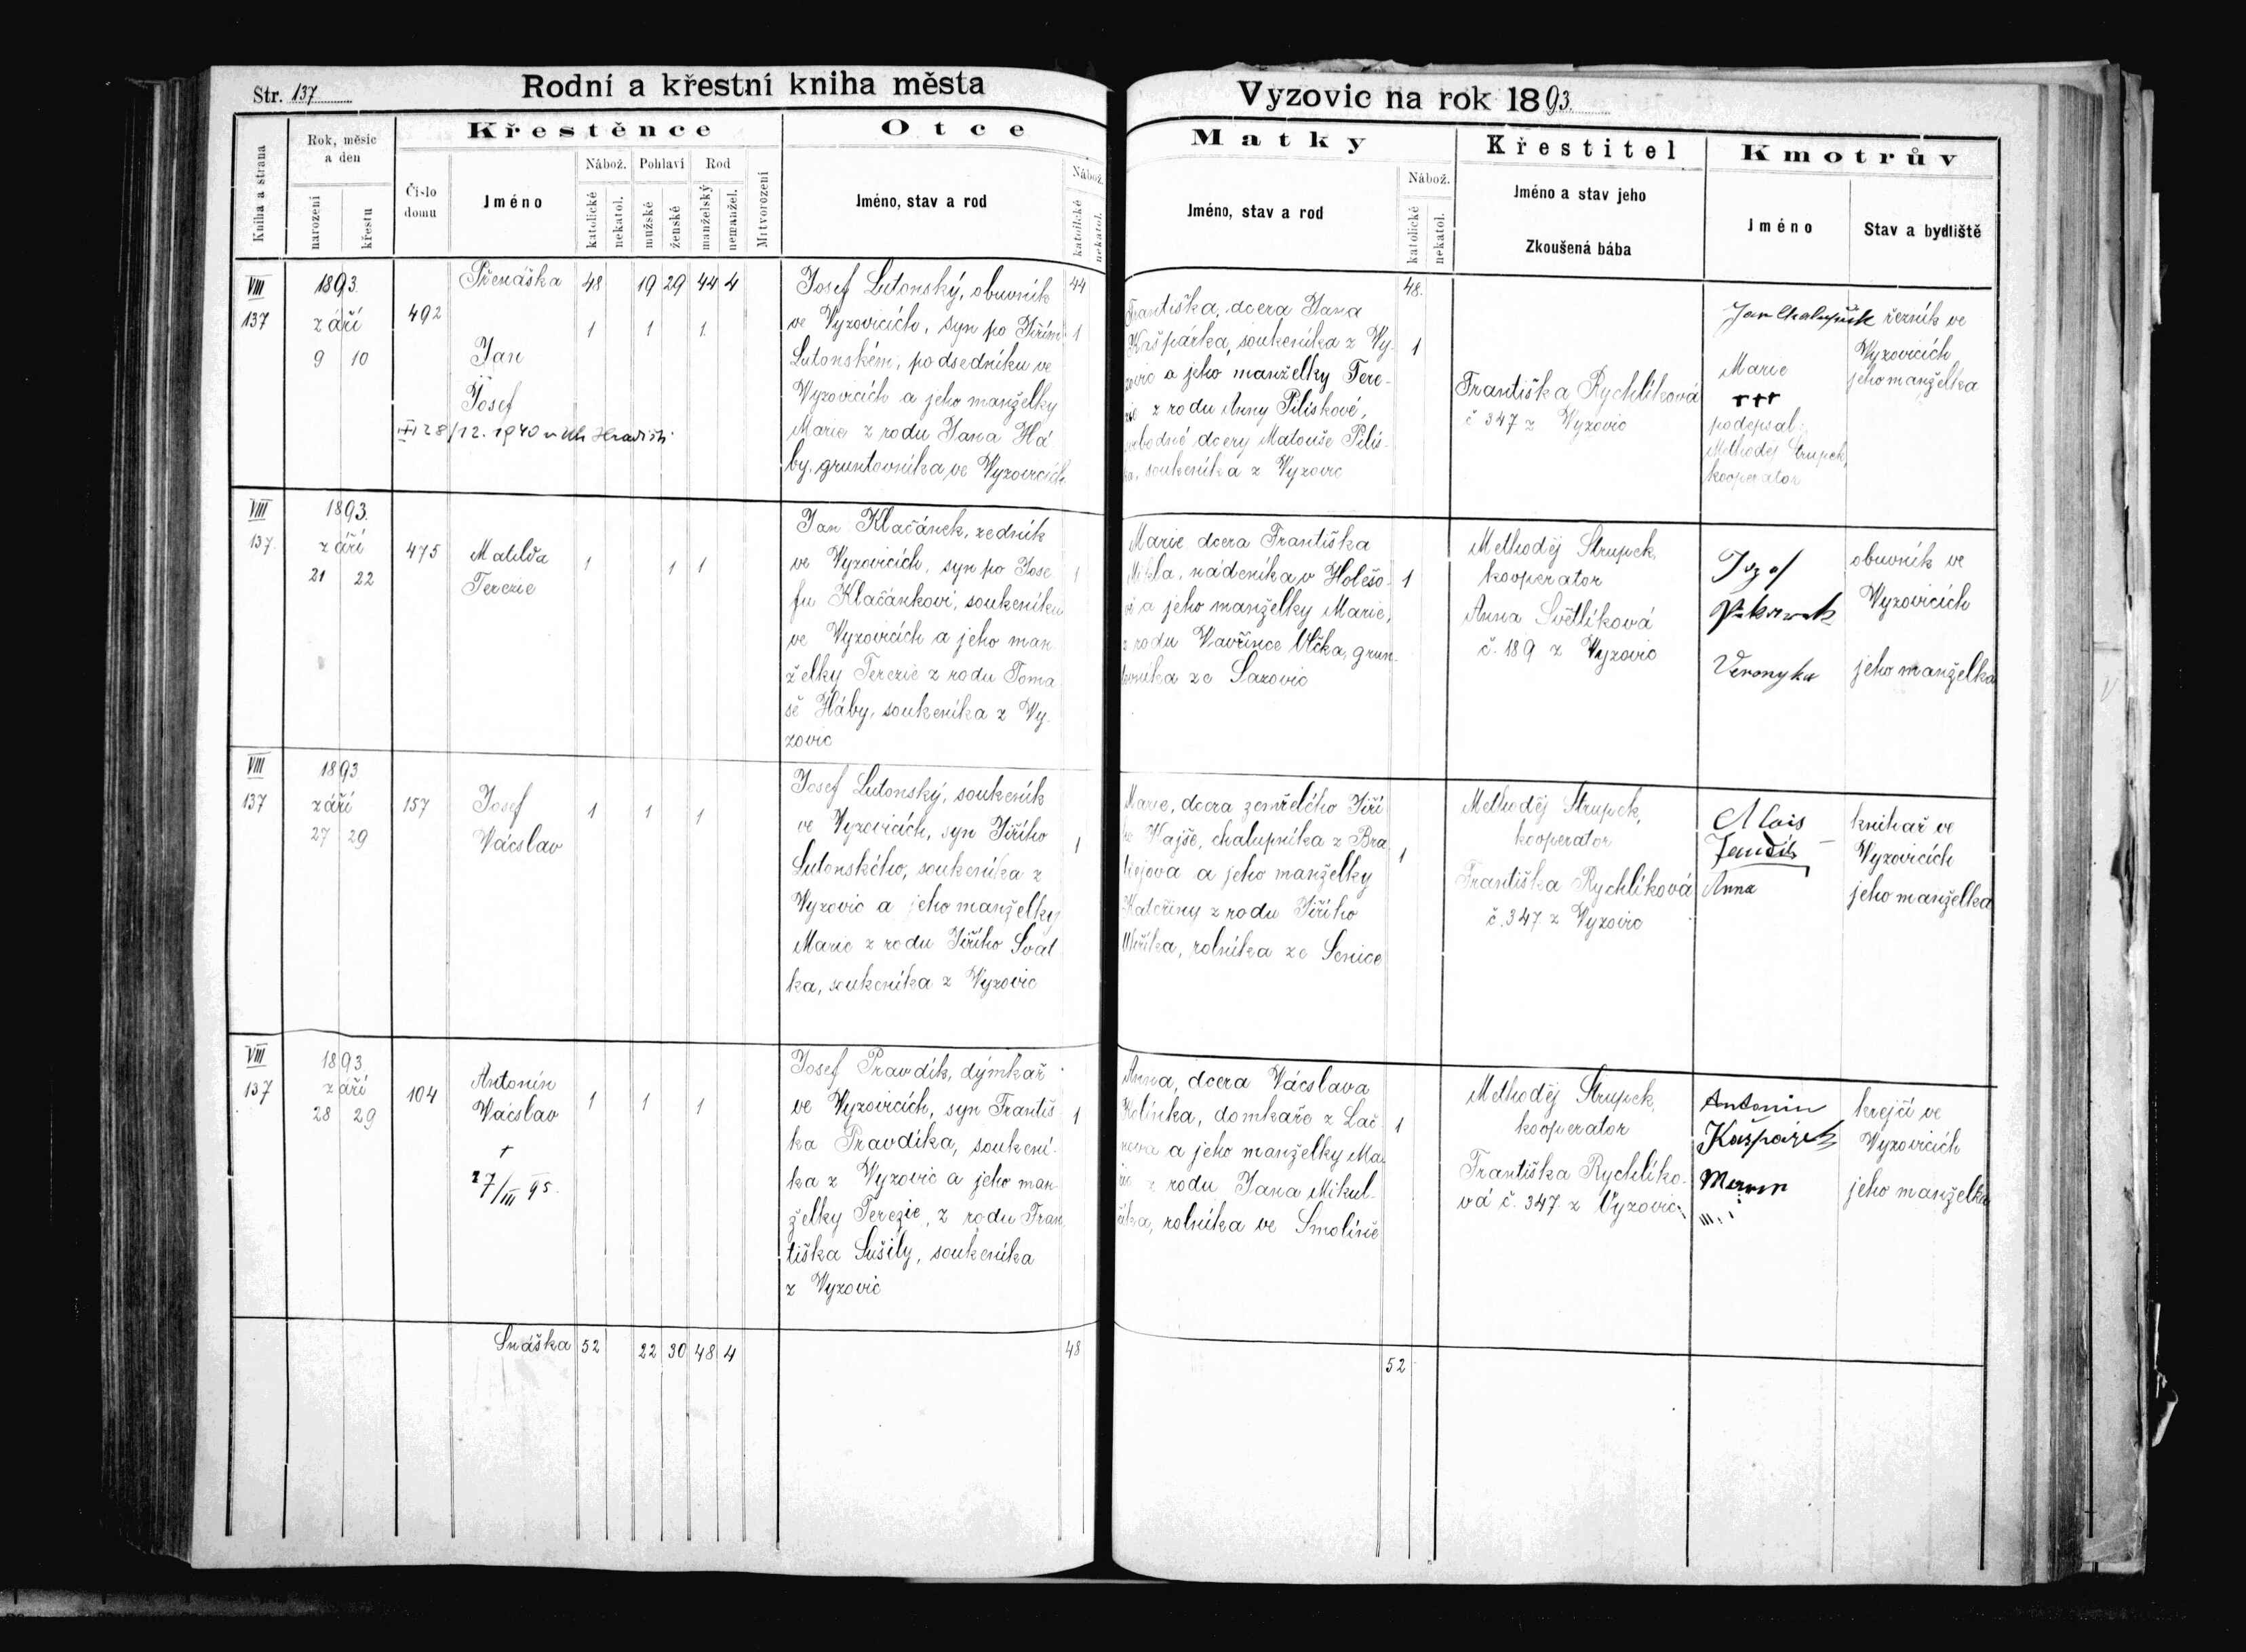 Str. 137
Rodní a křestní kniha města
Vyzovic na rok 1893.
Kniha a strana
Rok, měsíc
a den
narození
křestu
Číslo
domu
Křestěnce
Jméno
Nábož.
katolické
nekatol.
Pohlaví
mužské
ženské
Rod
manželský
nemanžel.
Mrtvorození
Otce
Jméno, stav a rod
Nábož.
katolické
nekatol.
Matky
Jméno, stav a rod
Nábož.
katolické
nekatol.
Křestitel
Jméno a stav jeho
Zkoušená bába
Kmotrův
Jméno
Stav a bydliště
Přenáška 48 19 29 44 4
44
48.
VIII
137
1893.
září
9 10
492
Jan
Josef
28/12. 1940 v Uh. Hradišti
1 1 1
Josef Lutonský, obuvník
ve Vyzovicích, syn po Jiřím
Lutonském, podsedníku ve
Vyzovicích a jeho manželky
Marie z rodu Jana Há
by, gruntovníka ve Vyzovicích
1
Františka, dcera Jana
Kašpárka, soukeníka z Vy-
zovic a jeho manželky Tere-
zie z rodu Anny Piliskové,
svobodné dcery Matouše Pilis-
ka, soukeníka z Vyzovic
1
Františka Rychlíková
č 347 z Vyzovic
Jan Chalupník
Marie
+++
podepsal:
Methoděj Strupek,
kooperator
řezník ve
Vyzovicích
jeho manželka
VIII
137.
1893.
září
21 22
475
Matilda
Terezie
1 1 1
Jan Klačánek, zedník
ve Vyzovicích, syn po Jose
fu Klačánkovi, soukeníku
ve Vyzovicích a jeho man
želky Terezie z rodu Toma
še Háby, soukeníka z Vy-
zovic
1
Marie dcera Františka
nádeníka v Holešo-
vě a jeho manželky Marie,
z rodu Vavřince Vlčka, grun-
tovníka ze Sazovic
1
Methoděj Strupek,
kooperator
Anna Světlíková
č. 189 z Vyzovic
Jozef
Veronyka
obuvník ve
Vyzovicích
jeho manželka
VIII
137
1893
září
27 29
157
Josef
Vácslav
1 1 1
Josef Lutonský, soukeník
ve Vyzovicích, syn Jiřího
Lutonského, soukeníka z
Vyzovic a jeho manželky
Marie z rodu Jiřího Svát
ka, soukeníka z Vyzovic
1
Marie, dcera zemřelého Jiří
ho Vajše, chalupníka z Bra
třejova a jeho manželky
Kateřiny z rodu Jiřího
rolníka ze Senice
1
Methoděj Strupek,
kooperator
Františka Rychlíková
č. 347 z Vyzovic
Alois
Anna
knihař ve
Vyzovicích
jeho manželka
VIII
137
1893.
září
28 29
104
Antonín
Vácslav
†
27/III 95.
1 1 1
Josef Pravdík, dýmkař
ve Vyzovicích, syn Františ
ka Pravdíka, soukení-
ka z Vyzovic a jeho man-
želky Terezie, z rodu Fran
tiška Sušily, soukeníka
z Vyzovic
1
Anna, dcera Vácslava
Kolínka, domkaře z Lač
nova a jeho manželky Ma
rie z rodu Jana Mikul-
číka, rolníka ve Smolině
1
Methoděj Strupek,
kooperator
Františka Rychlíko-
vá č. 347 z Vyzovic
Antonin
Kašpárek
krejčí ve
Vyzovicích
jeho manželka
Snáška 52 22 30 48 4
48
52